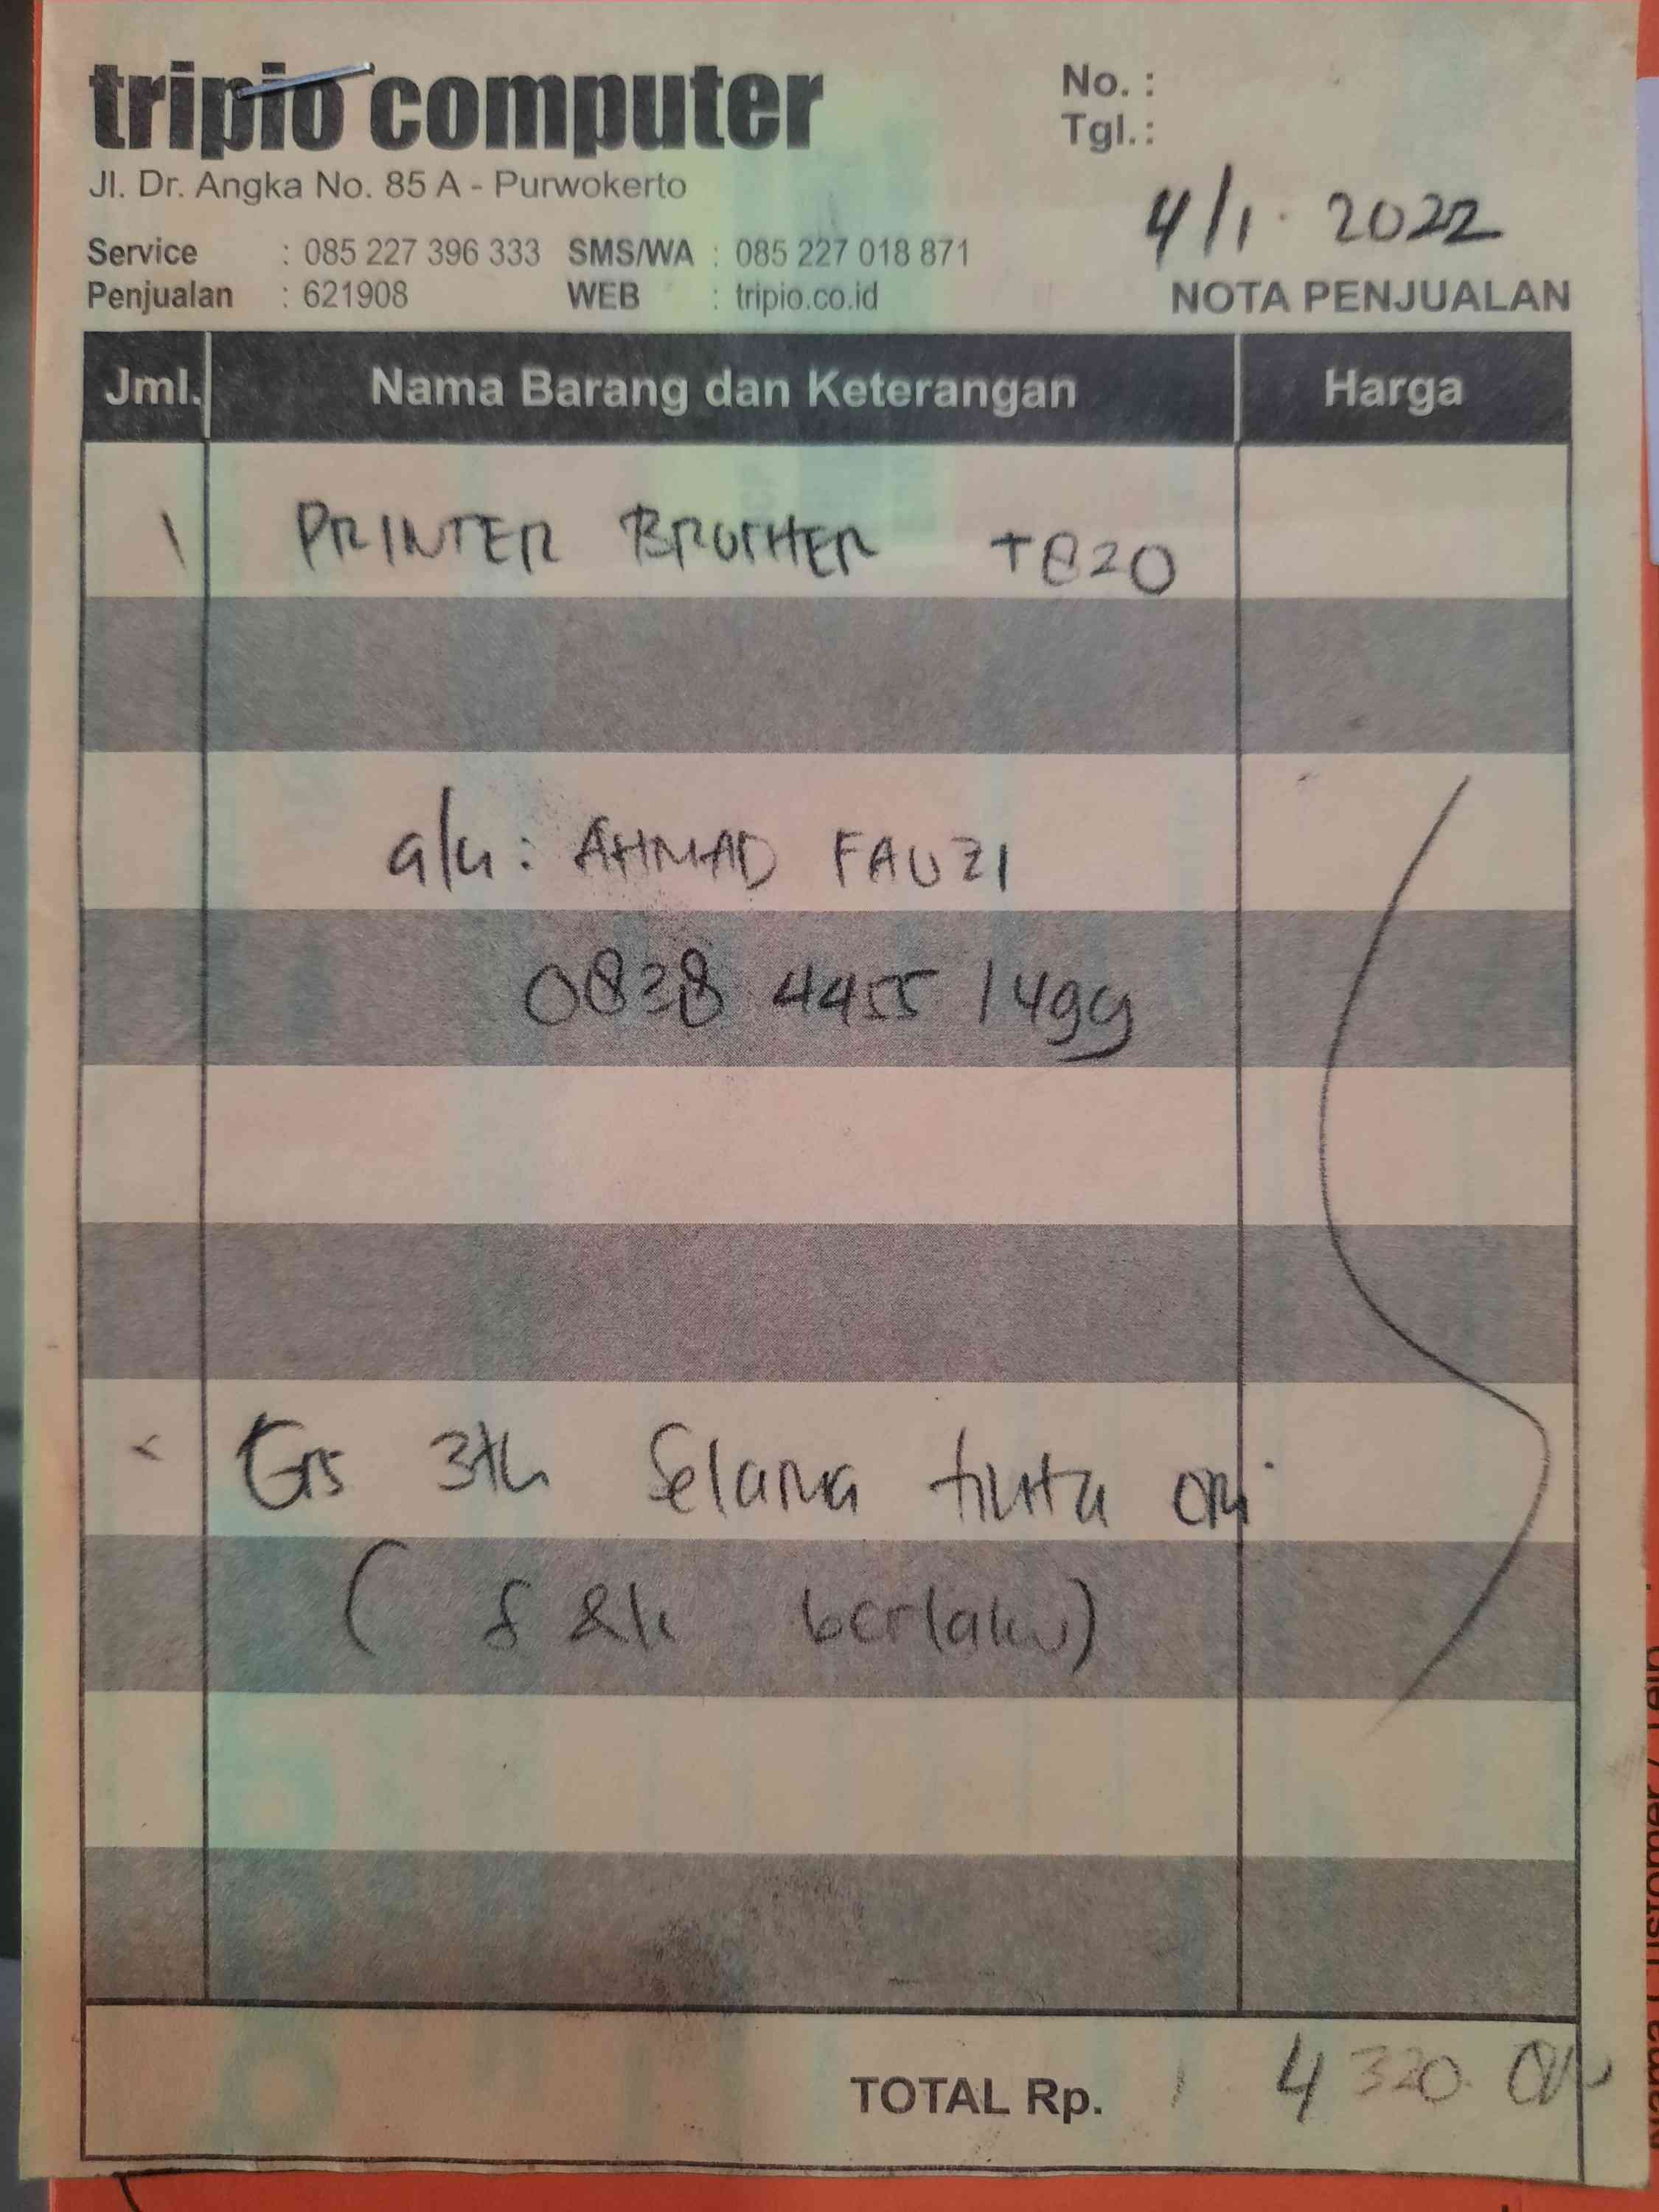 tripio computer
No. :
Tgl. :
Jl. Dr. Angka No. 85 A - Purwokerto
4/1. 2022
Service : 085 227 396 333 SMS/WA : 085 227 018 871
Penjualan : 621908 WEB : tripio.co.id
NOTA PENJUALAN
Jml. Nama Barang dan Keterangan Harga
1 PRINTER BROTHER T820
a/n : AHMAD FAUZI
0838 4455 1499
Grs 3th Selama tinta ori
( S &k berlaku)
TOTAL Rp. 4 320.